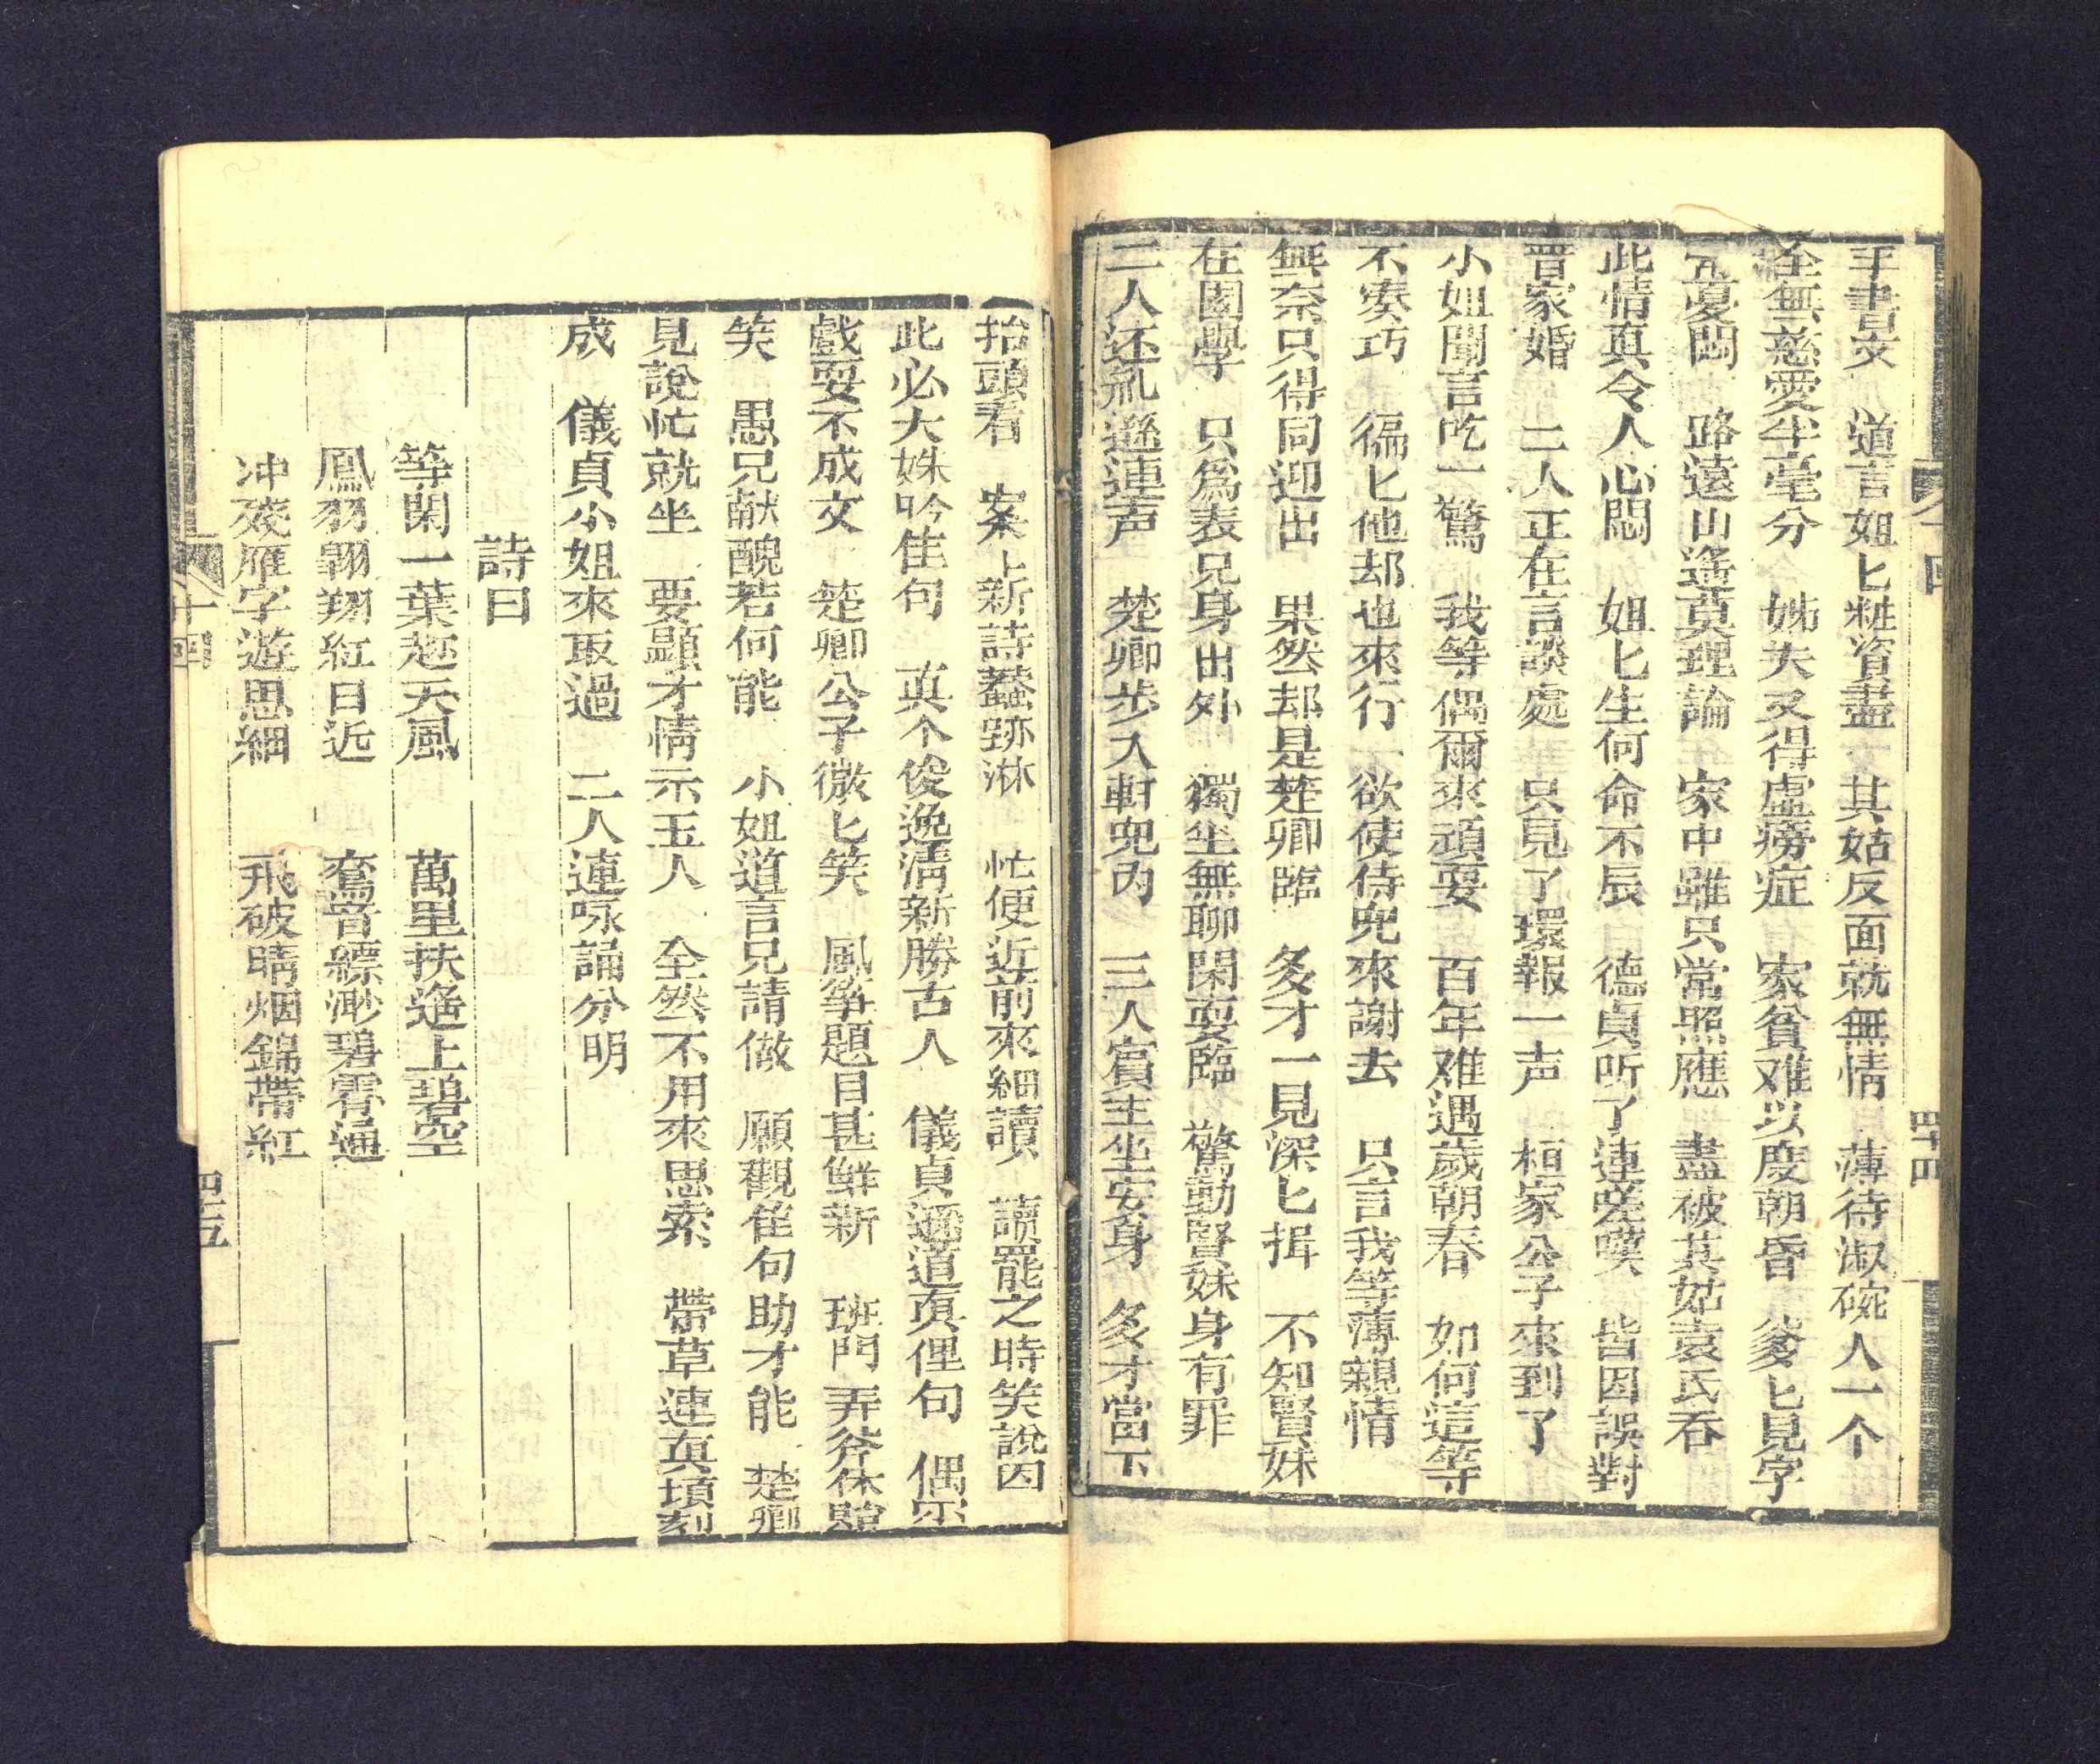 手書文　道言姐匕粧資盡　其姑反面就無情　薄待淑碗人一个
全無慈愛半毫分　姊夫又得虛癆症　家貧难以度朝昏　爹匕見字
憂悶　路遠山遙莫理論　家中雖只常照應　盡被其姑袁氏吞
此情真令人心悶　姐匕生何命不辰　德貞听了連嗟嘆　皆因誤對
晋家婚　二人正在言談處　只見了環報一声　桓家公子來到了
小姐聞言吃一驚　我等偶爾來頑耍　百年难遇歲朝春　如何這等
不湊巧　徧匕他却也來行　欲使侍児來謝去　只言我等薄親情
無奈只得同迎出　果然却是楚卿臨　多才一見深匕揖　不知賢妹
在園學　只為表兄身出外　獨坐無聊閑耍臨　驚動賢妹身有罪
二人还礼遜連声　楚卿步入軒児內　三人賓主坐安身　多才當下
四十四
抬頭看　案上新詩蘸跡淋　忙便近前來細讀　讀罷之時笑說因
此必大妹吟佳句　真个俊逸清新勝古人　儀貞遜道真俚句　偶尔
戲耍不成文　楚卿公子微匕笑　風箏題目甚鮮新　班門弄斧休貽
笑　愚兄献醜若何能　小姐道言兄請做　願觀佳句助才能　楚卿
見說忙就坐　要顯才情示玉人　全然不用來思索　帶草連真頃刻
成　儀貞小姐來取過　二人連咏誦分明
詩曰
等閑一葉趂天風　萬里扶遙上碧空
鳳羽翱翔紅日近　鸞音縹渺碧霄通
冲殘雁字遊思細　飛破晴烟錦帶紅
十四
四十五